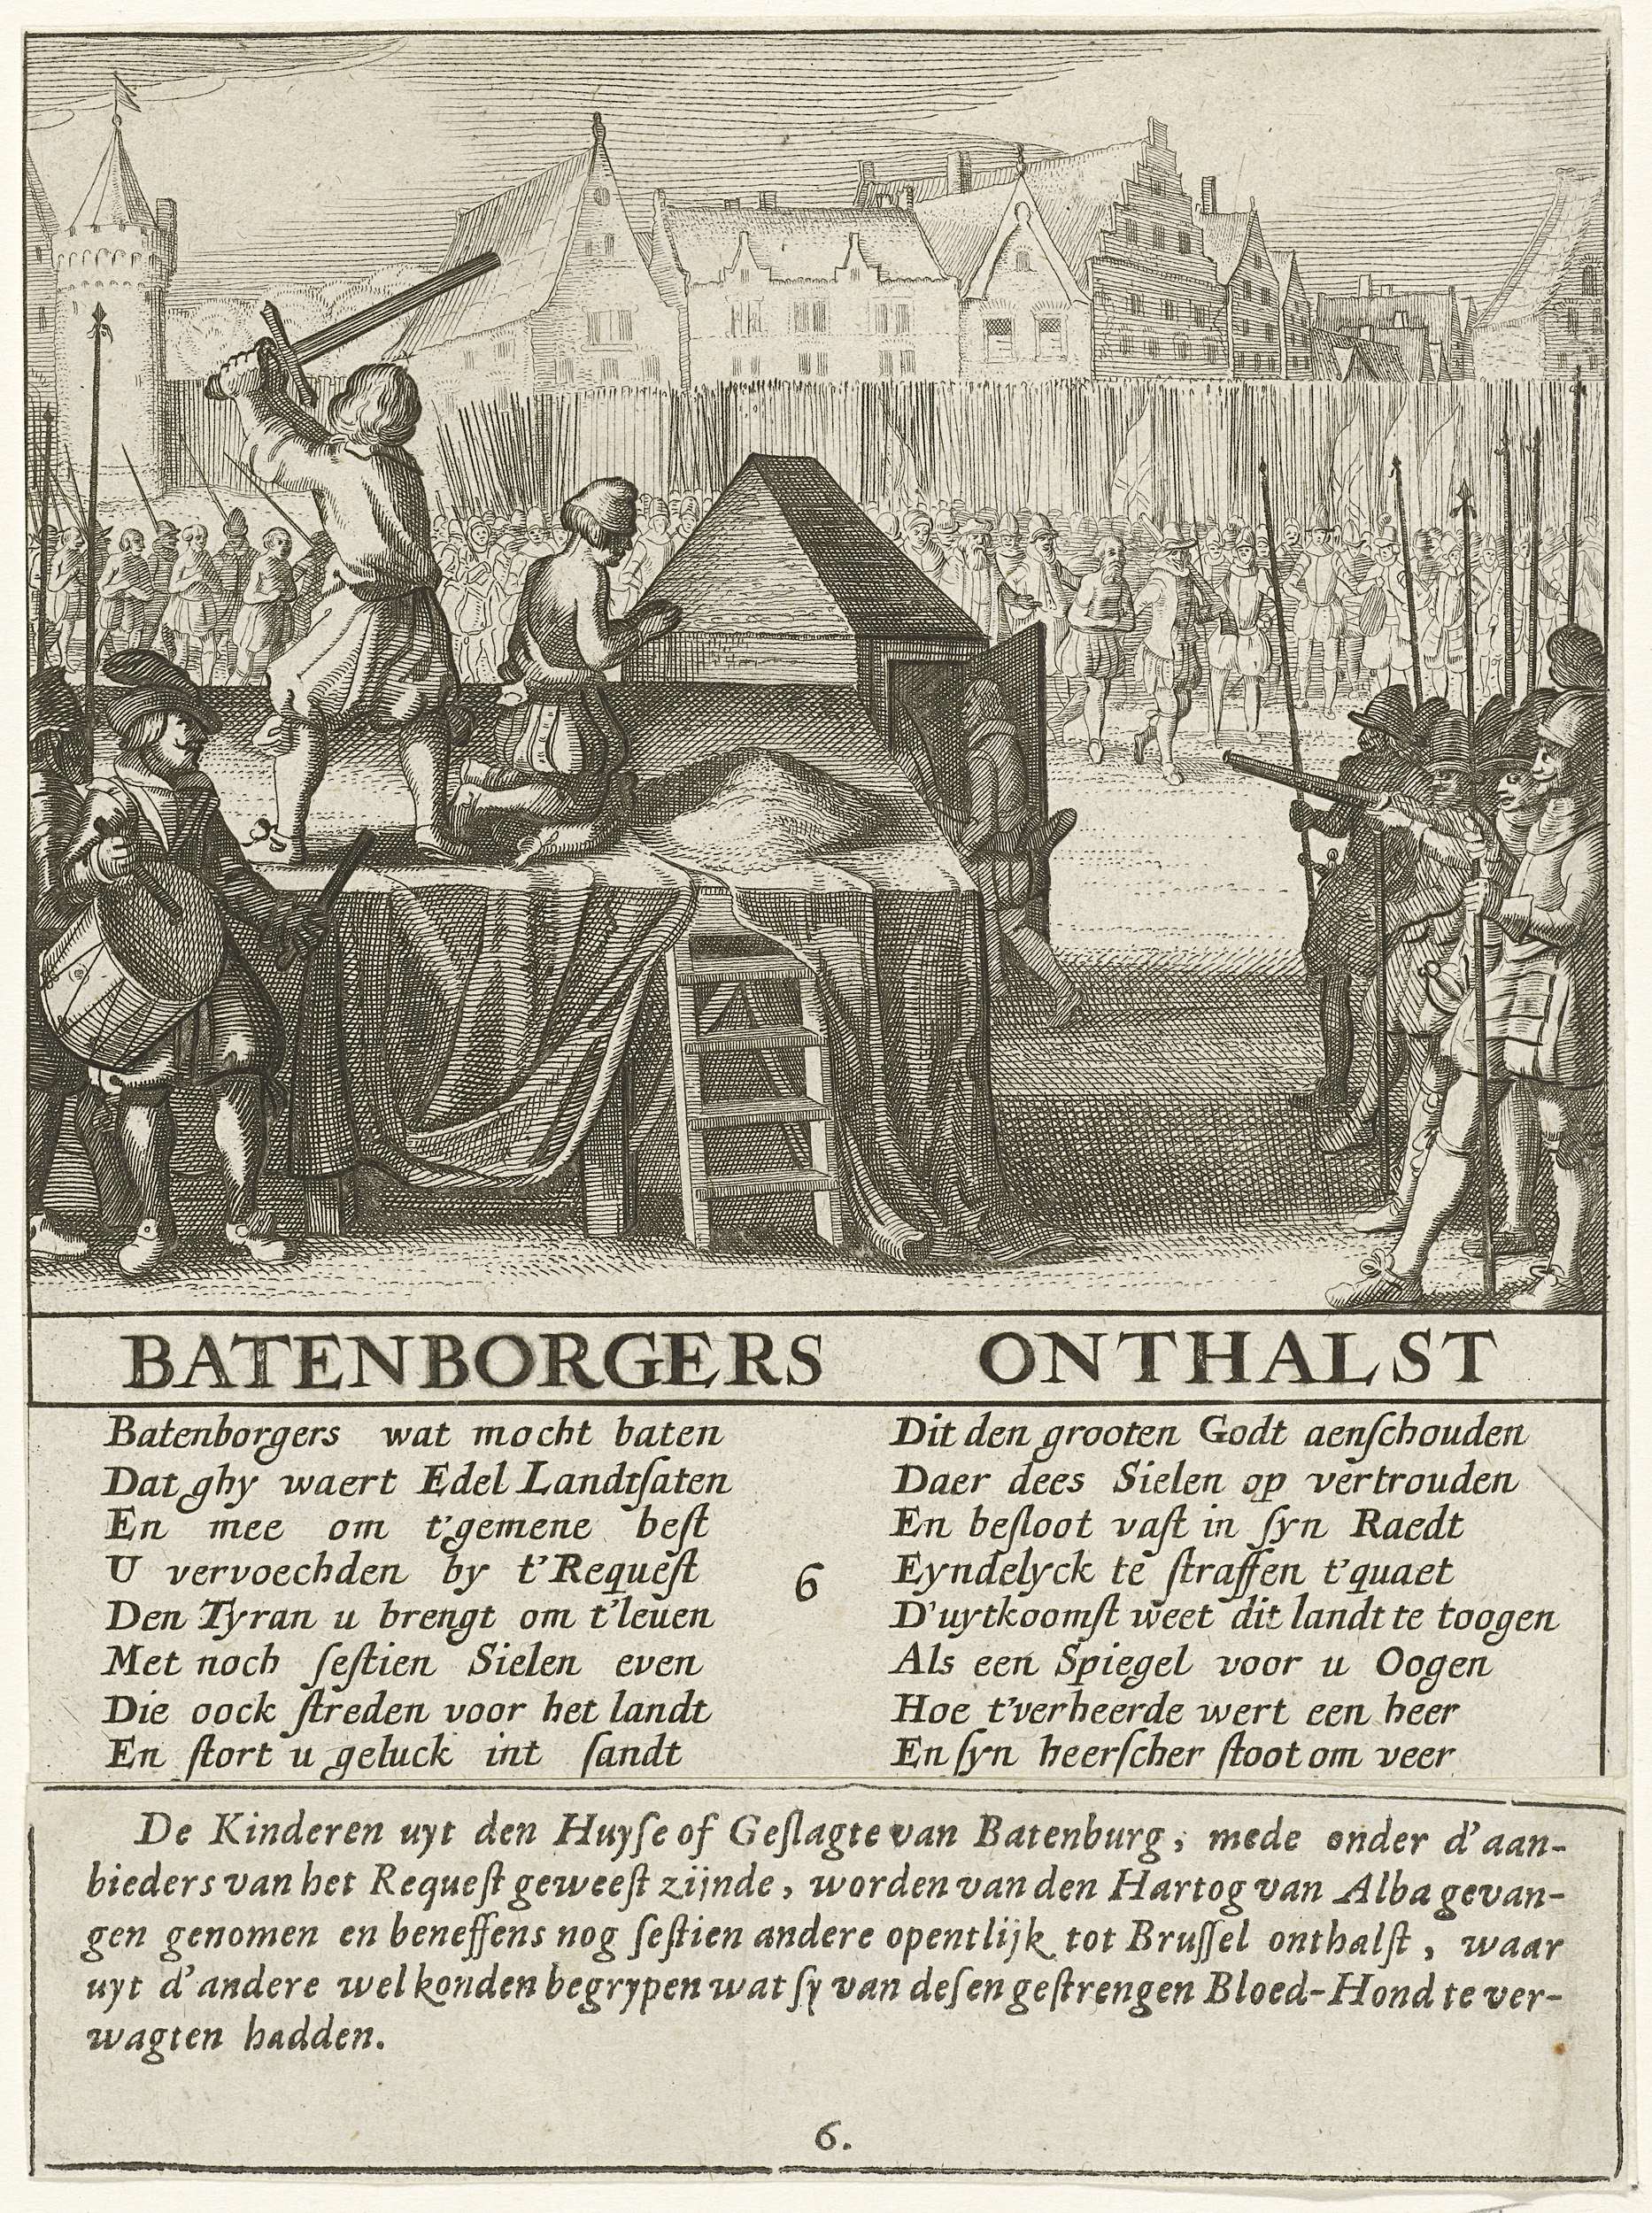 BATENBORGERS ONTHALST
Batenborgers wat mocht baten
Dat ghy waert Edel Landtſaten
En mee om t'gemene beſt
U vervoechden by t'Requeſt
Den Tyran u brengt om t'leuen
Met noch ſeſtien Sielen even
Die oock ſtreden voor het landt
En ſtort u geluck int ſandt
6
Dit den grooten Godt aenſchouden
Daer dees Sielen op vertrouden
En beſloot vaſt in ſyn Raedt
Eyndelyck te ſtraffen t'quaet
D'uytkoomſt weet dit landt te toogen
Als een Spiegel voor u Oogen
Hoe t'verheerde wert een heer
En ſyn heerſcher ſtoot om veer
De Kinderen uyt den Huyſe of Geſlagte van Batenburg, mede onder d'aan-
bieders van het Requeſt geweeſt zijnde, worden van den Hartog van Alba gevan-
gen genomen en beneffens nog ſeſtien andere opentlijk tot Bruſſel onthalſt, waar
uyt d'andere wel konden begrypen wat ſy van deſen geſtrengen Bloed-Hond te ver-
wagten hadden.
6.